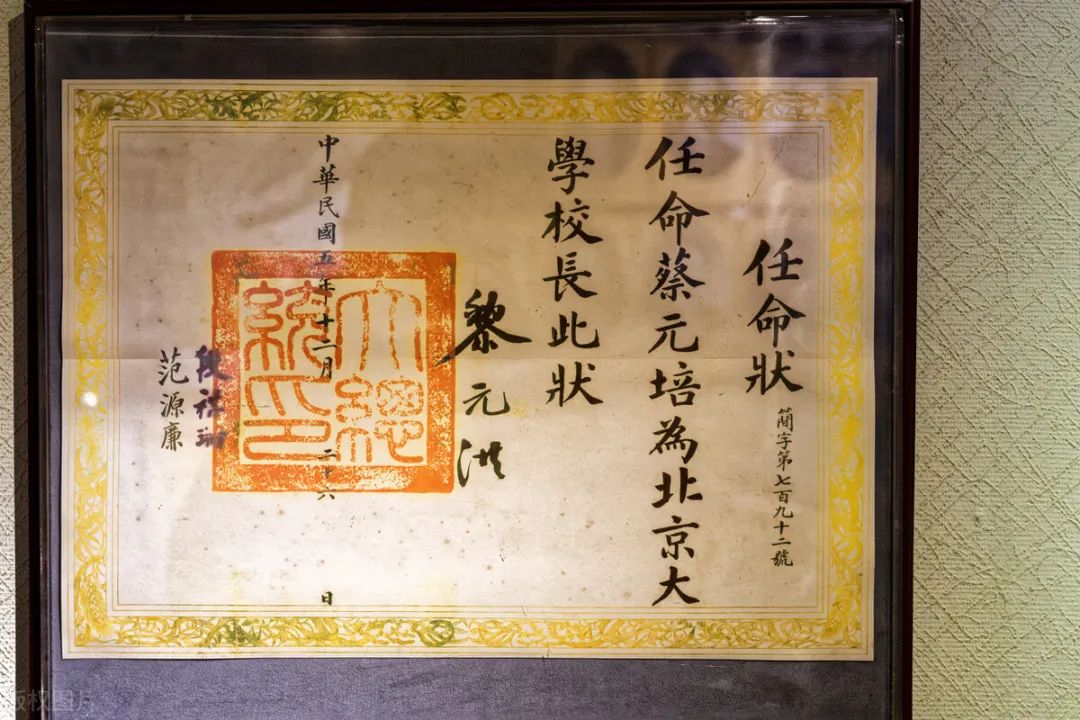 任命狀
簡字第七百九十二號
任命蔡元培為北京大
學校長此狀
黎元洪
大總
統印
中華民國五年十二月二十六日
段祺瑞
范源廉
版权图片